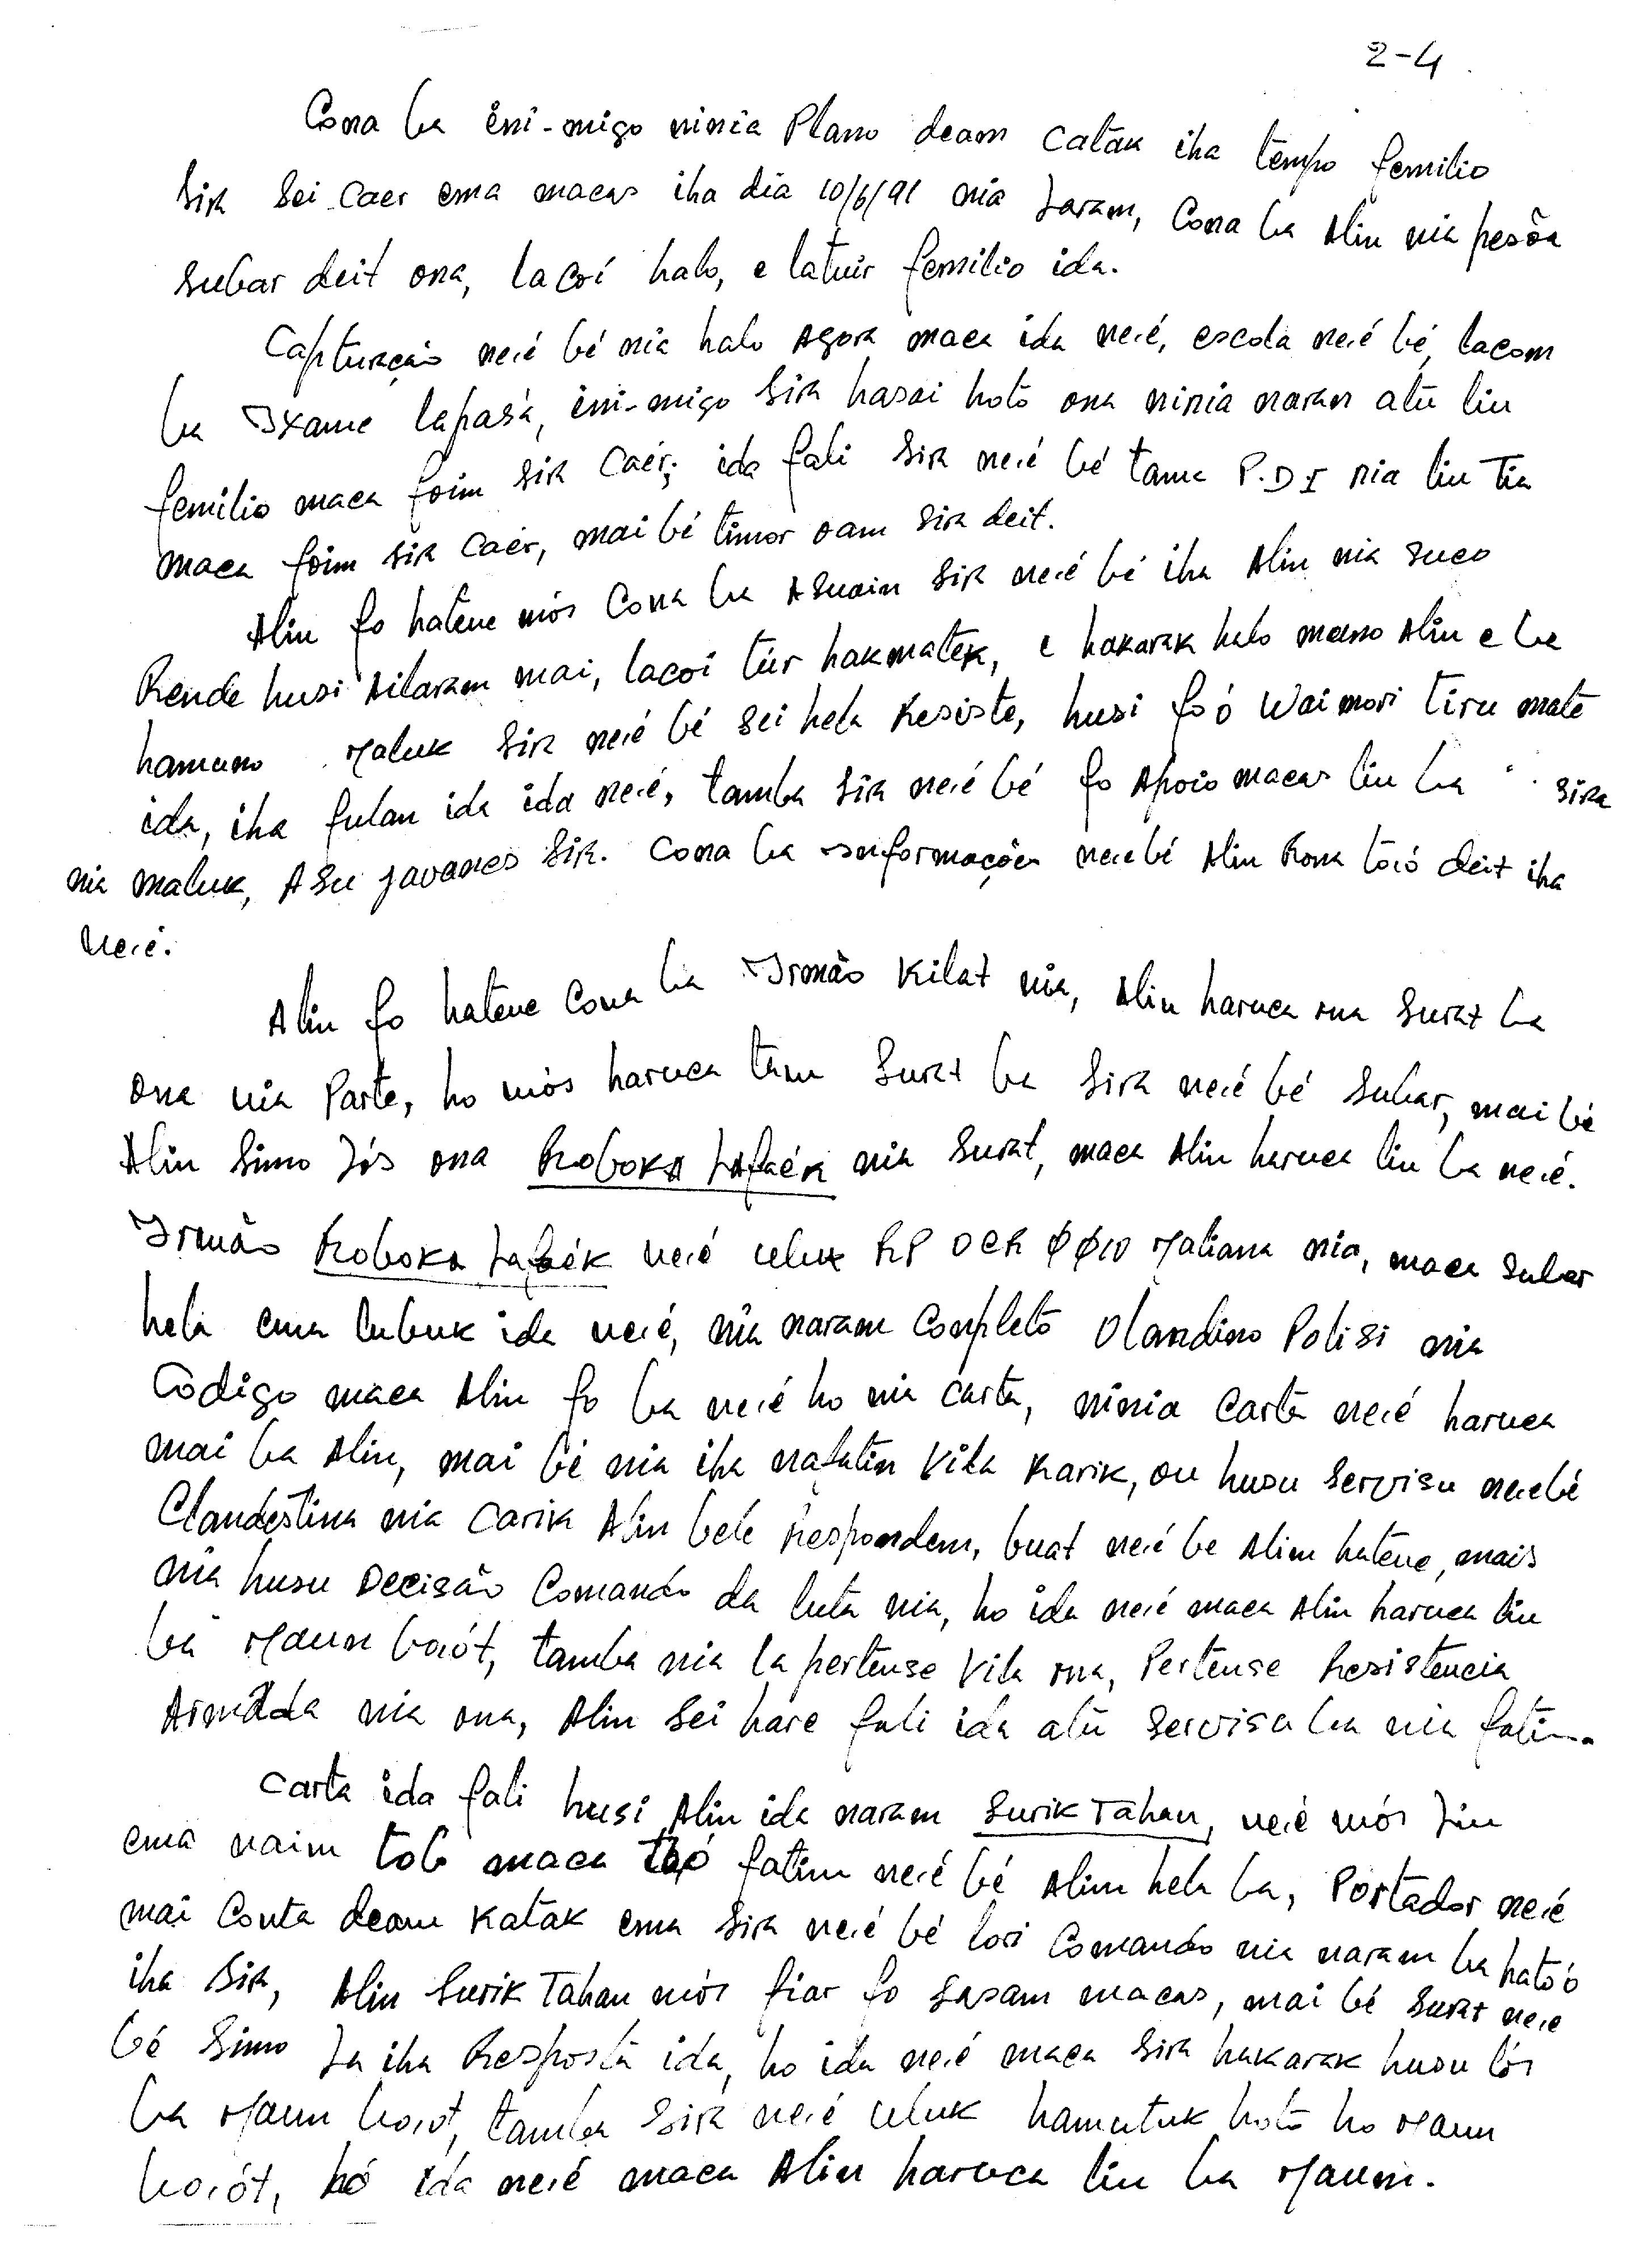 2-4
Cona ba ini-migo ninia Plano deam catak iha tempo femilio
Sira Sei Caer ema macas iha dia 10/6/91 nia laram, Cona ba Alin nia pesõa
Subar deit ona, lacoi halo, e latuir femilio ida.
Capturação ne.é bé nia halo Agora maca ida ne.é, escola ne.é bé, lacom
ba Ixame lapasá, ini-migo Sira hasai hotó ona ninia naran atú liu
femilio maca foim sira Caér; ida fali Sira ne.é bé tama P.D.I nia liu Tia
maca foim sira Caér, mai bé timor oam sira deit.
Alin fo hatene mós Cona ba Asuain Sira ne.é bé iha Alin nia suco
Rende husi Ailaram mai, lacoi túr hakmatek, e hakarak halo meno Alin e ba
hamuno Maluk Sira ne.é bé sei hela Resiste, husi fó ó Waimori tiru mate
ida, iha fulan ida ida ne.é, tamba sira ne.é bé fo Apoio macas liu ba sira
nia maluk, Asu javanes Sira. Cona ba informações ne.e bé Alin Rona tó.ó deit iha
ne.é.
Alin fo hatene Cona ba Irmão Kilat nia, Alin haruca ona Surat ba
ona nia Parte, ho mós haruca tam Surat ba Sira ne.é bé Subar, mai bé
Alin Simo lós ona Roboka Lafaék nia Surat, maca Alin haruca liu ba ne.é.
Irmão Roboka Lafaék ne.é uluk RP OCR ØØ10 Maliana nia, maca subar
hela ema lubuk ida ne.é, nia naram Completo Olandino Polisi nia
Codigo maca Alin fo ba ne.é ho nia carta, ninia Carta ne.é haruca
mai ba Alin, mai bé nia iha nafatin Vila Karik, ou husu Servisu ne.e bé
Clandestina nia Carik Alin bele Respondem, buat ne.é be Alin hatene, mais
nia husu Decisão Comando da luta nia, ho ida ne.é maca Alin haruca liu
ba Maun bo.ót, tamba nia la pertense Vila ona, Pertense Resistencia
Armada nia ona, Alin Sei hare fali ida atú Servisu ba nia fatin.
Carta ida fali husi Alin ida naram Surik Tahan, ne.é mós liu
ema naim tolo maca tó.ó fatim ne.é bé Alin hela ba, Portador ne.é
mai Conta deam Katak ema Sira ne.é bé lori Comando nia naram ba ható ó
iha Sira, Alin Surik Tahan mós fiar fo Sasam macas, mai bé Surat ne.e
bé Simo La iha Resposta ida, ho ida ne.é maca Sira hakarak husu lós
ba Maun bo.ót, tamba Sira ne.é uluk hamutuk hotó ho Maun
bo.ót, hó ida ne.é maca Alin haruca liu ba Maum.